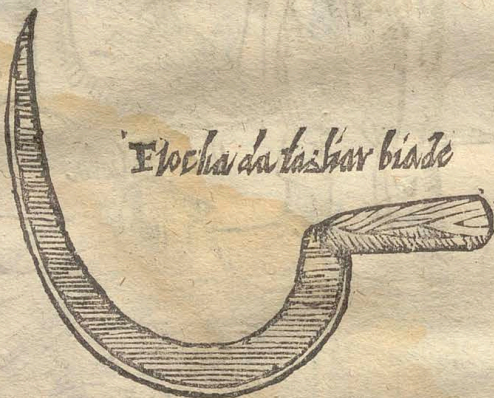 Flocha da tashar biade